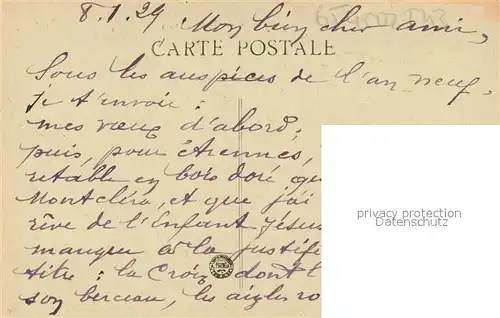 8.1.29 Mon bien cher ami,
CARTE POSTALE
Sous les auspices de l'an neuf,
je t'envoie :
mes vœux d'abord,
puis, pour étrennes,
retable en bois doré que
Montcléra, et que j'ai
rêve de l'Enfant Jésus
manque à la justifi
titre : la Croix dont l
son berceau, les aigles ro
privacy protection
Datenschutz